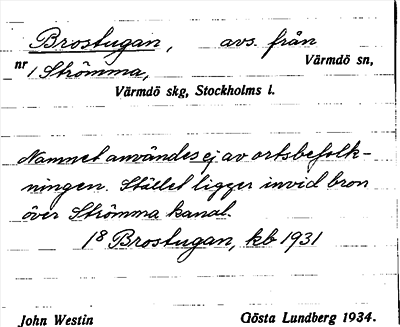 Brostugan, avs. från
nr 1 Strömma, Värmdö sn,
Värmdö skg, Stockholms l.
Namnet användes ej av ortsbefolk-
ningen. Stället ligger invid bron
över Strömma kanal.
18 Brostugan, kb 1931
John Westin Gösta Lundberg 1934.